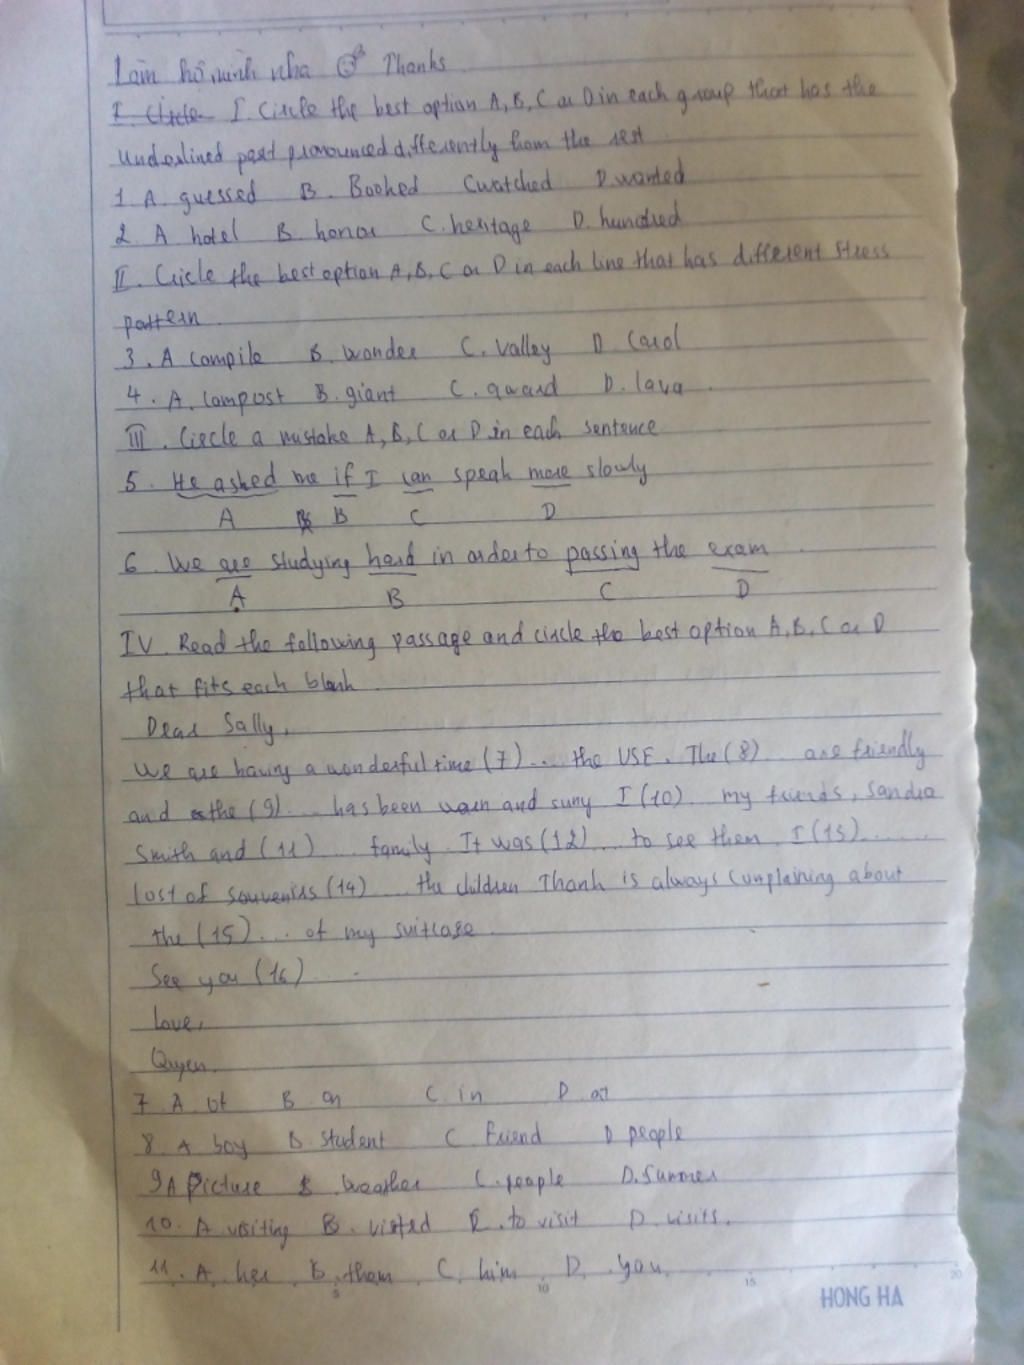 Làm hộ mình nha Thanks
I. Circle I. Circle the best option A, B, C or D in each group that has the
underlined part pronounced differently from the rest
1 A. guessed B. Booked C watched D. wanted
2. A hotel B. honor C. heritage D. hundred
II. Circle the best option A, B, C or D in each line that has different stress
pattern
3. A compile B. wonder C. valley D. carol
4. A. compost B. giant C. award D. lava
III. Circle a mistake A, B, C or D in each sentence
5. He asked me if I can speak more slowly
A B C D
6. We are studying hard in order to passing the exam
A B C D
IV. Read the following passage and circle the best option A, B, C or D
that fits each blank
Dear Sally,
We are having a wonderful time (7) ... the USE. The (8) ... are friendly
and the (9) ... has been warn and suny I (10) ... my friends, Sandra
Smith and (11) ... family. It was (12) ... to see them. I (13) ...
lost of souvenirs (14) ... the children Thanh is always complaining about
the (15) ... of my suitcase.
See you (16) ...
Love,
Quyen.
7 A. of B. on C. in D. at
8. A boy B. student C. friend D people
9 A picture B. weather C. people D. Summer
10. A visiting B. visited C. to visit D. visits.
11. A. her B. them C. him D. you
5 10 15 20
HONG HA